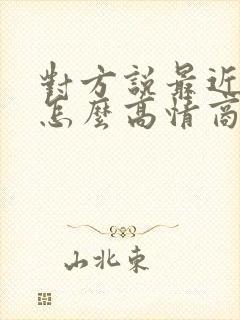 對方說最近
怎麼高情商
山北東